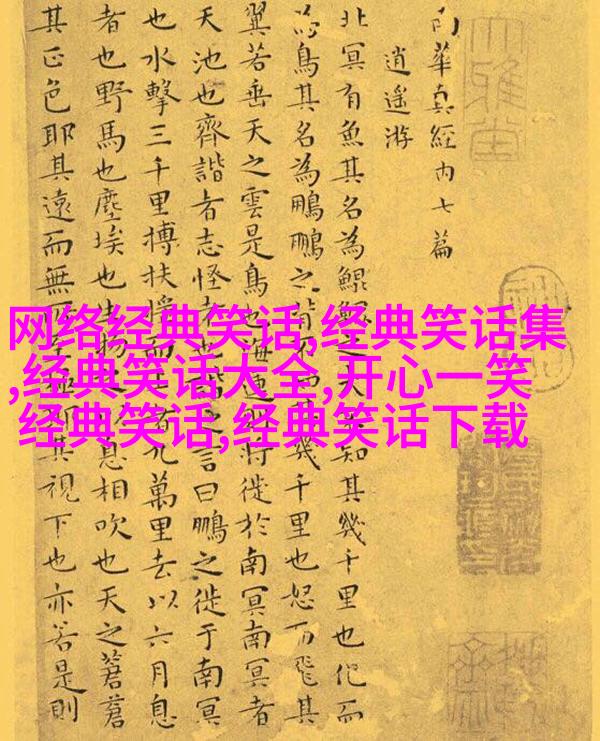 网络经典笑话,经典笑话集
,经典笑话大全,开心一笑
经典笑话,经典笑话下载
南華真經内七篇
逍遥游
北冥有魚其名為鯤鯤之大不知其幾千里也化而
為鳥其名為鵬鵬之背不知其幾千里也怒而飛其
翼若垂天之雲是鳥也海運則將徙於南冥南冥者
天池也齊諧者志怪者也諧之言曰鵬之徙于南冥
也水擊三千里搏扶摇而上者九萬里去以六月息
者也野馬也塵埃也生物之以息相吹也天之蒼蒼
其正色耶其遠而無所至極耶其視下也亦若是則